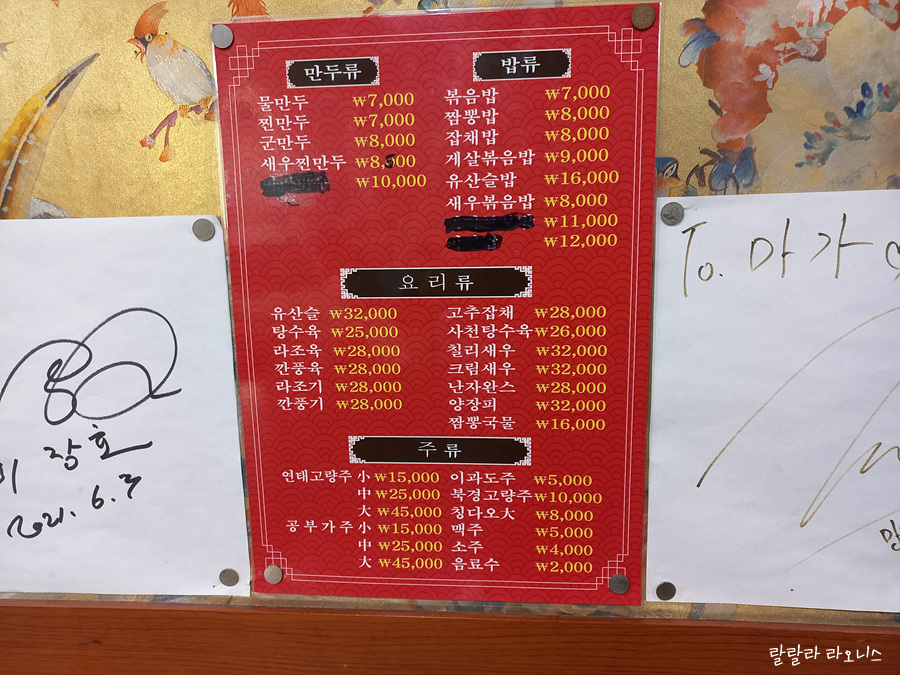 만두류
물만두 ₩7,000
찐만두 ₩7,000
군만두 ₩8,000
새우찐만두 ₩8,500
₩10,000
밥류
볶음밥 ₩7,000
짬뽕밥 ₩8,000
잡채밥 ₩8,000
게살볶음밥 ₩9,000
유산슬밥 ₩16,000
새우볶음밥 ₩8,000
₩11,000
₩12,000
요리류
유산슬 ₩32,000
탕수육 ₩25,000
라조육 ₩28,000
깐풍육 ₩28,000
라조기 ₩28,000
깐풍기 ₩28,000
고추잡채 ₩28,000
사천탕수육 ₩26,000
칠리새우 ₩32,000
크림새우 ₩32,000
난자완스 ₩28,000
양장피 ₩32,000
짬뽕국물 ₩16,000
주류
연태고량주 小 ₩15,000
中 ₩25,000
大 ₩45,000
공부가주 小 ₩15,000
中 ₩25,000
大 ₩45,000
이과도주 ₩5,000
북경고량주 ₩10,000
칭다오大 ₩8,000
맥주 ₩5,000
소주 ₩4,000
음료수 ₩2,000
장호
2021. 6. 3
To. 마가
랄랄라 라오니스